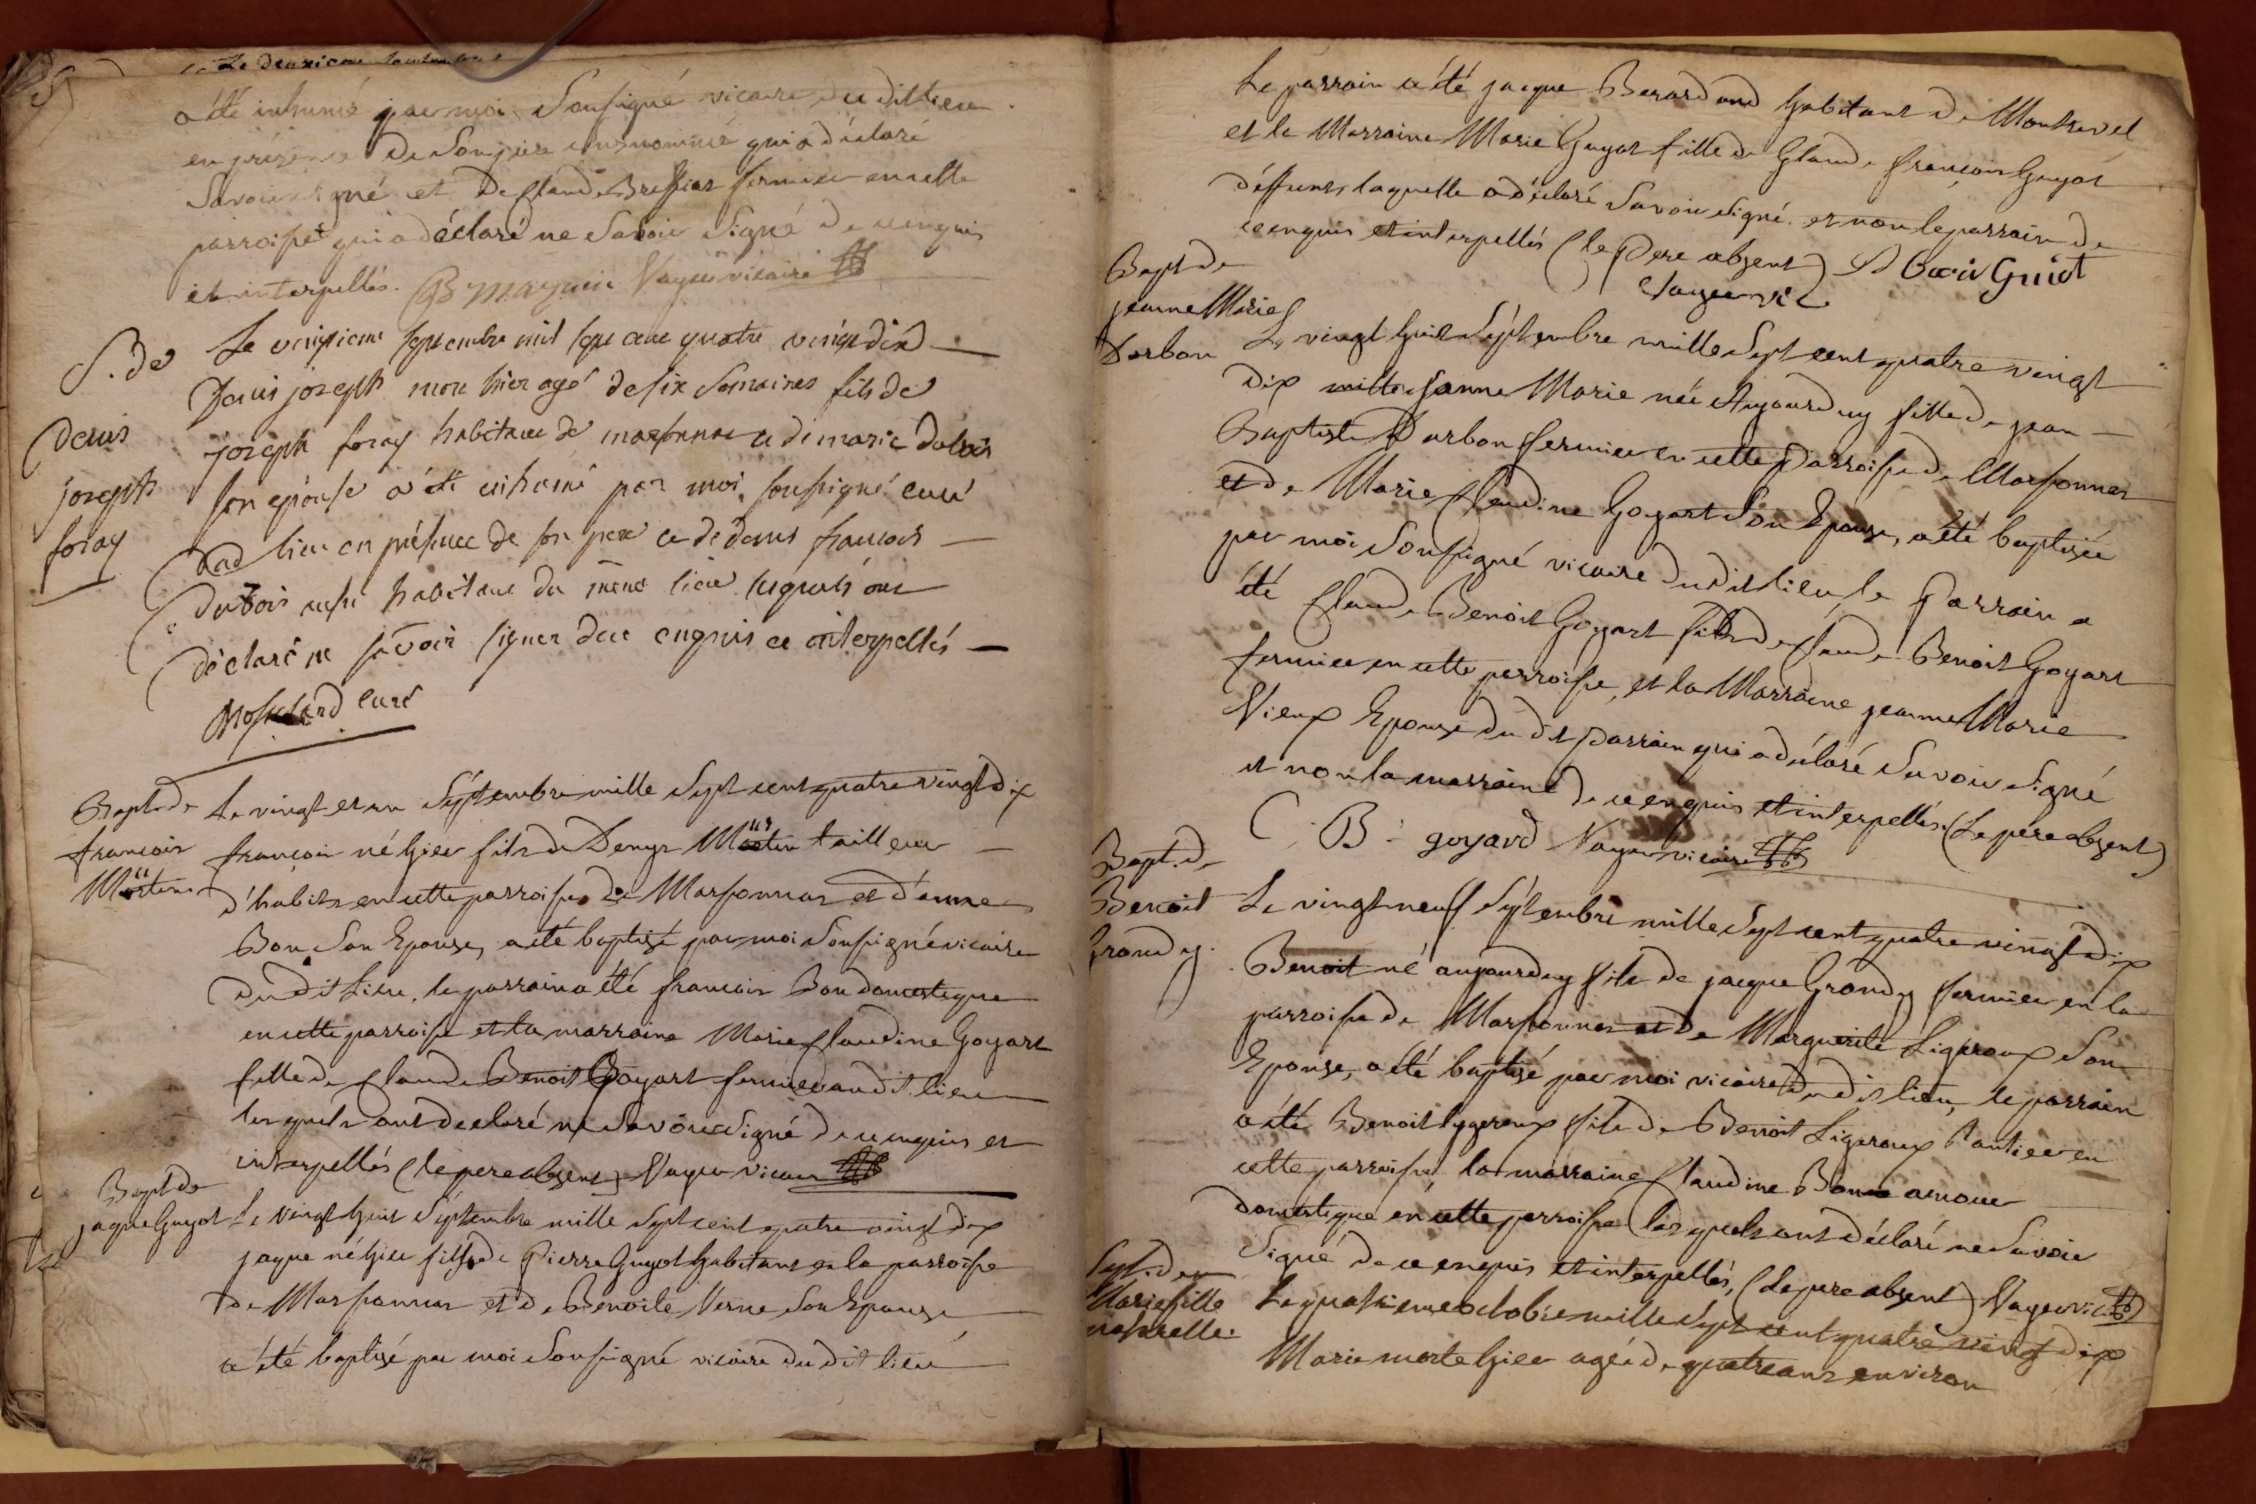 a été inhumé par moi Sousigné vicaire du dit lieu.
en présence de Son père susnommé qui a déclaré
Savoir signé et de Claude fermier en cette
parroisse qui a déclaré ne Savoir Signé de ce enquis
et interpellés. Vayer vicaire
S. de
denis
joseph
foray
Le vingtieme septembre mil sept cent quatre vingt dix
Denis joseph mort hier agé de six Semaines fils de
joseph foray habitant de marsonnas et de marie dubois
son epouse a été inhumé par moi soussigné curé
dud lieu en présence de son pere et de denis francois
dubois aussi habitant du même lieu lesquels ont
déclaré ne sçavoir signer de ce enquis et interpellés
curé
Bapt. de
francois
Martin
Le vingt et un Séptembre mille Sept cent quatre vingt dix
francois né hier fils de Denys Martin tailleur
d'habits en cette parroisse de Marsonnas et d'anne
Bon Son Epouse, a été baptisé par moi Sousigné vicaire
du dit Lieu, le parrain a été francois Bon domestique
en cette parroisse et la marraine Marie Claudine Goyart
fille de Claude Benoit Goyart fermier audit lieu
les quels ont declaré ne Savoir Signé de ce enquis et
interpellés (le pere absent) Vayer vicaire
Bapt de
jaque Guyot
Le vingt huit Séptembre mille Sept cent quatre vingt dix
jaque né hier fils de Pierre Guyot habitant en la parroisse
de Marsonnas et de Benoite Verne Son Epouse
a été baptisé par moi Sousigné vicaire du dit lieu
Le parrain a été jacque Berardand habitant de Montrevel
et la Marraine Marie Guyot fille de Claude francois Guyot
déffunt, laquelle a déclaré Savoir Signé et non le parrain de
ce enquis et interpellés (le Pere absent) Guiot
Vayer vic
Bapt de
jeanne Marie
Darbon
Le vingt huit Séptembre mille Sept cent quatre vingt
dix jeanne Marie née Aujourduy fille de jean
Baptiste Darbon fermier en cette Parroisse de Marsonnas
et de Marie Claudine Goyart Son Epouse, a été baptisée
par moi Sousigné vicaire du dit lieu, le Parrain a
été Claude Benoit Goyart fils de Claude Benoit Goyart
fermier en cette parroisse, et la Marraine jeanne Marie
Vieux Epouse du dit Parrain qui a déclaré Savoir Signé
et non la marraine de ce enquis et interpellés. (Le père absent)
C : B : goyard Vayer vicaire
Bapt. de
Benoit
Grandy.
Le vingt neuf Séptembre mille Sept cent quatre vingt dix
Benoit né aujourduy fils de jacque Grandy fermier en la
parroisse de Marsonnas et de Marguerite Ligeroux Son
Epouse, a été baptisé par moi vicaire du dit lieu, le parrain
a été Benoit lygeroux fils de Benoit Ligeroux en
cette parroisse, la marraine Claudine Bon amour
domestique en cette parroisse les quels ont déclaré ne Savoir
Signé de ce enquis et interpellés, (Le pere absent) Vayer vic
Sept. de
Marie fille
naturelle.
Le quatrieme octobre mille Sept cent quatre vingt dix
Marie morte hier agée de quatre ans environ